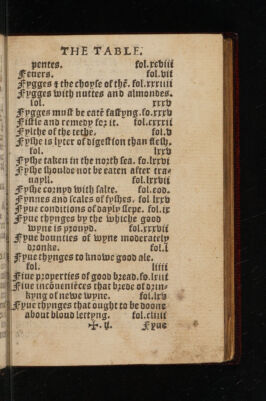 THE TABLE.
pentes. fol.xcviii
Feuers. fol.vii
Fygges & the choyse of thē. fol.xxxiiii
Fygges with nuttes and almondes.
fol. xxxv
Fygges must be eatē fastyng. fo.xxxv
Fistle and remedy for it. fol.cxxxii
Fylthe of the tethe. fol.v
Fyshe is lyter of digestion than flesh.
fol. lxx
Fyshe taken in the north sea. fo.lxvi
Fyshe shoulde not be eaten after tra-
uayll. fol.lxvii
Fyshe cornyd with salte. fol.eod.
Fynnes and scales of fyshes. fol lxv
Fyue conditions of dayly slepe. fol.ix
Fyue thynges by the whiche good
wyne is prouyd. fol.xxxvii
Fyue bounties of wyne moderately
dronke. fol.l
Fyue thynges to knowe good ale.
fol. liiii
Fiue properties of good bread. fo.lviii
Fiue incōueniēces that brede of drin-
kyng of newe wyne. fol.lxv
Fyue thynges that ought to be doone
about bloud lettyng. fol.cliiii
✠.ii. Fyue